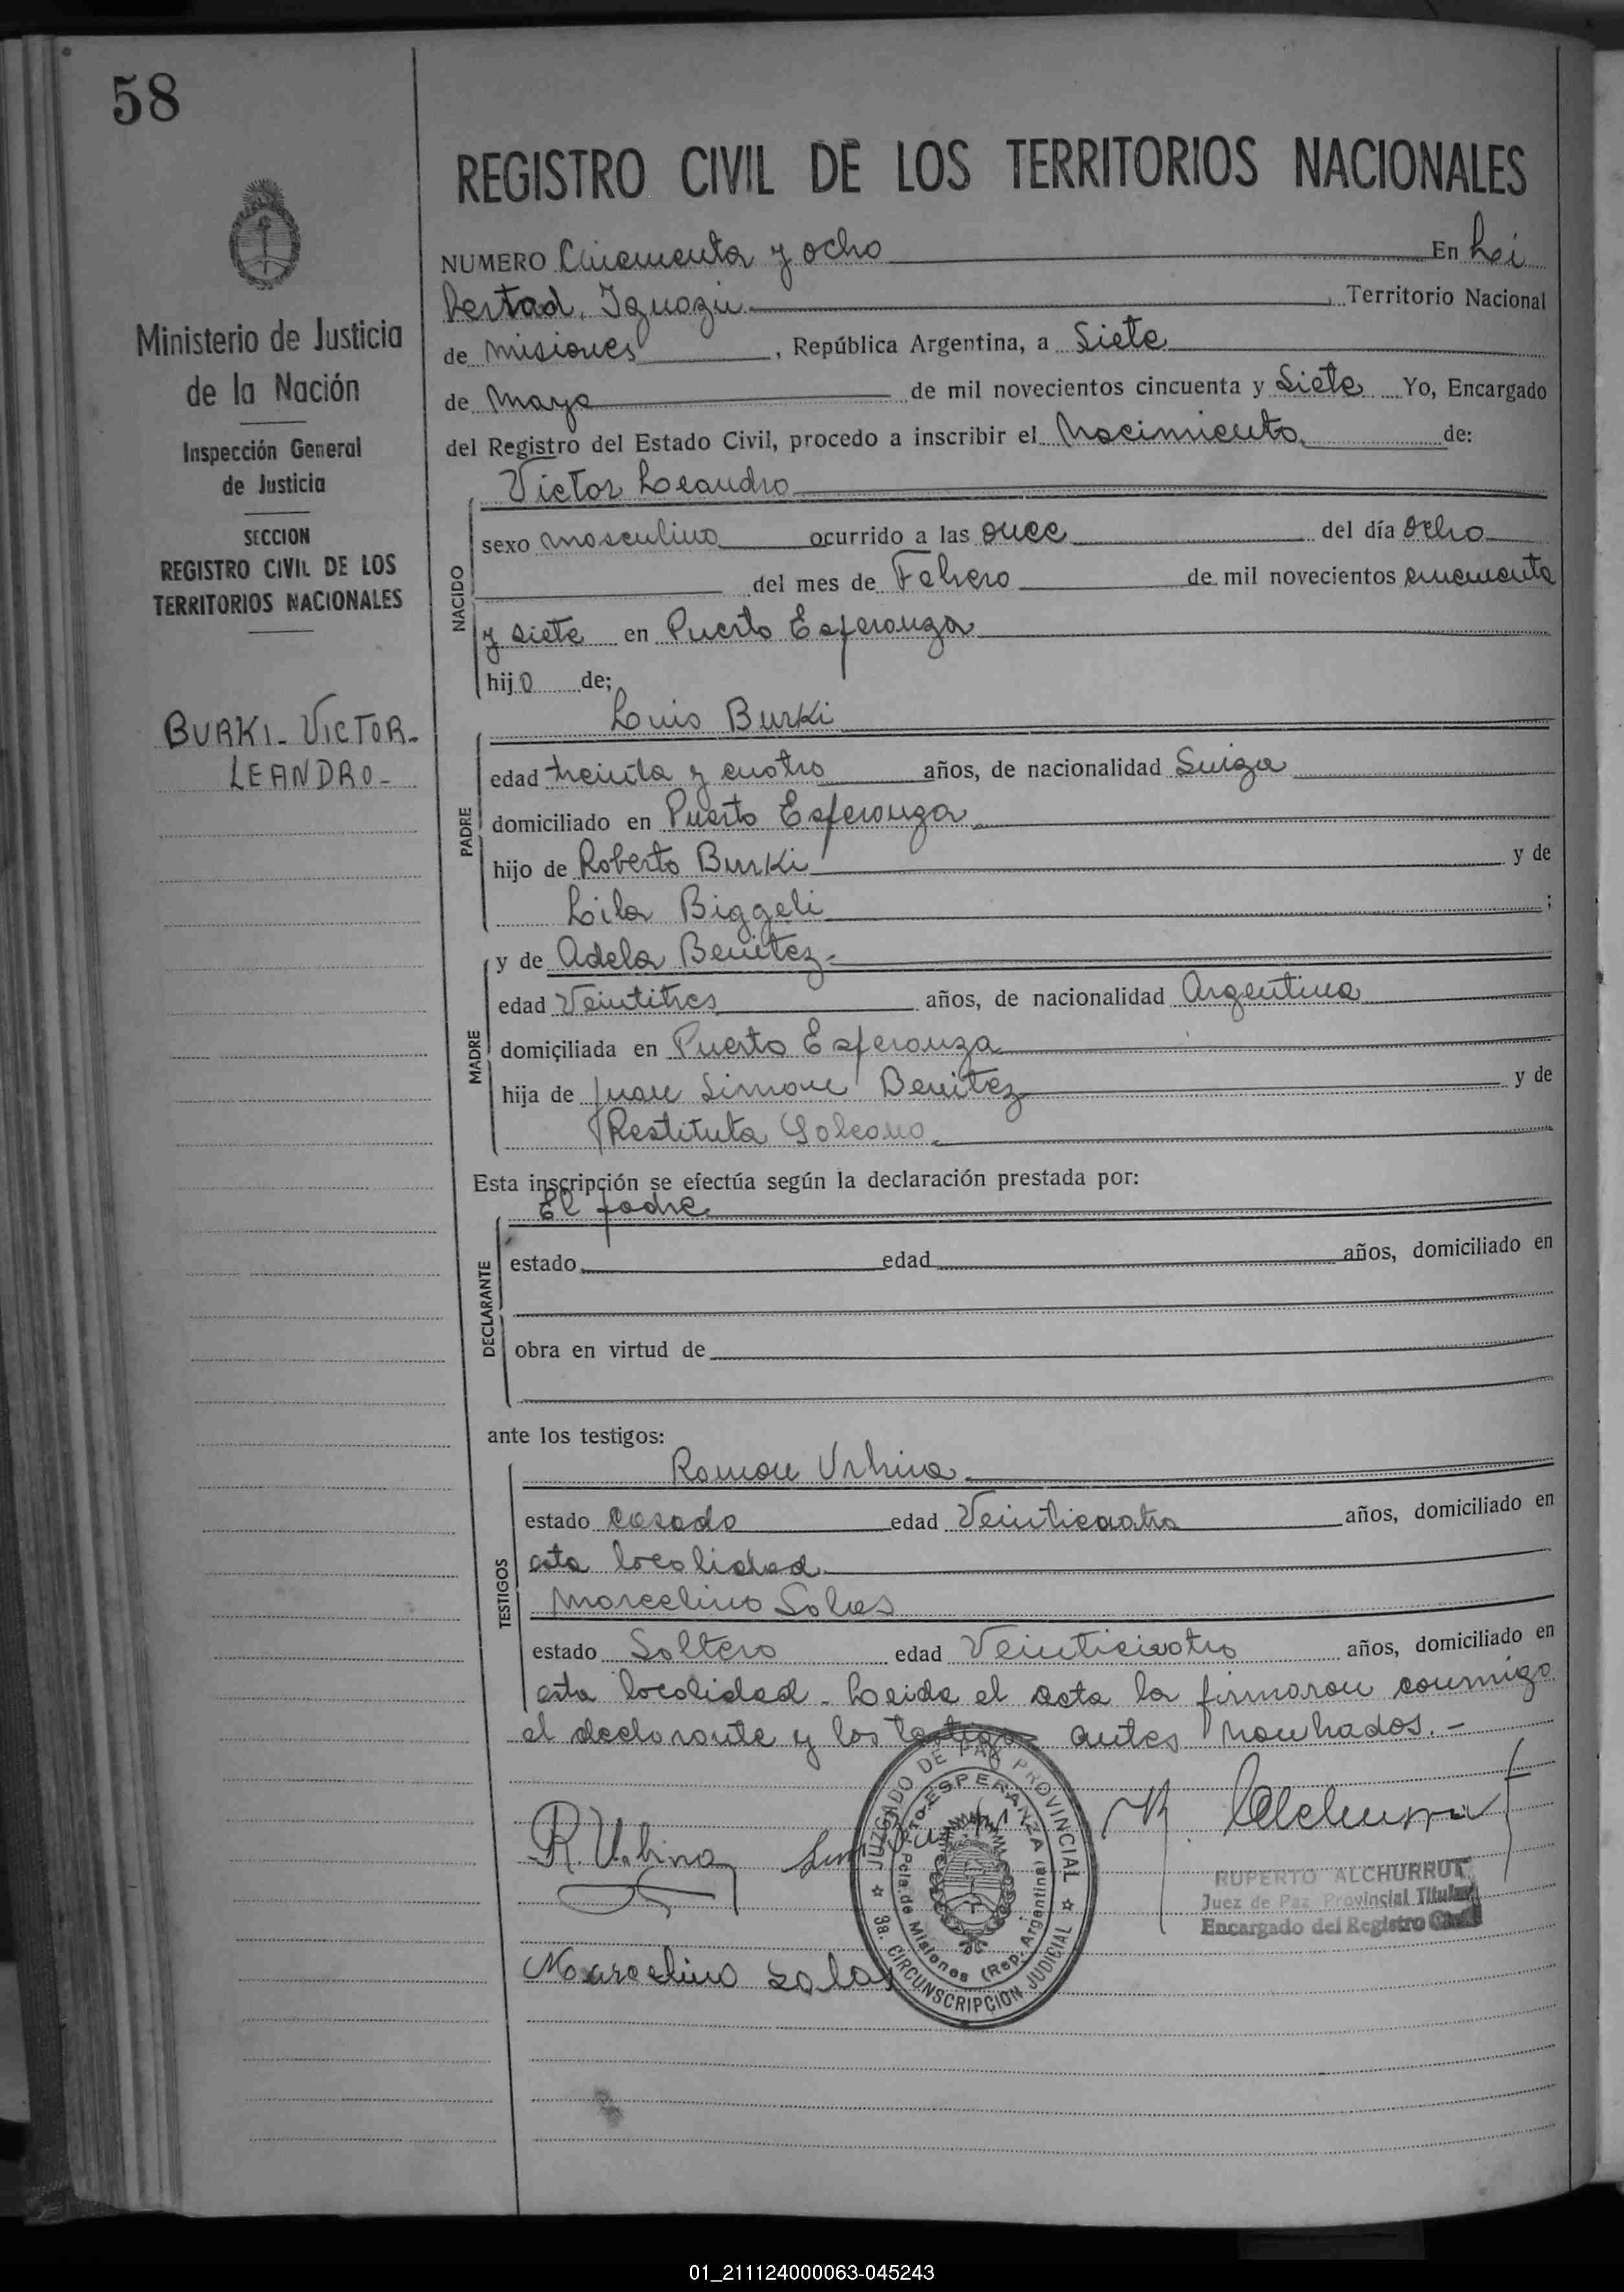 58
REGISTRO CIVIL DE LOS TERRITORIOS NACIONALES
Ministerio de Justicia
de la Nación
Inspección General
de Justicia
SECCION
REGISTRO CIVIL DE LOS
TERRITORIOS NACIONALES
BURKI - VICTOR -
LEANDRO -
NUMERO Cincuenta y ocho En Li
bertad, Iguazú Territorio Nacional
de Misiones, República Argentina, a Siete
de Mayo de mil novecientos cincuenta y Siete Yo, Encargado
del Registro del Estado Civil, procedo a inscribir el Nacimiento de:
NACIDO
Victor Leandro
sexo masculino ocurrido a las once del día Ocho
del mes de Febrero de mil novecientos cincuenta
y siete en Puerto Esperanza
hijo de;
PADRE
Luis Burki
edad treinta y cuatro años, de nacionalidad Suiza
domiciliado en Puerto Esperanza
hijo de Roberto Burki y de
Lila Biggeli ;
MADRE
y de Adela Benitez.
edad Veintitres años, de nacionalidad Argentina
domiciliada en Puerto Esperanza
hija de Juan Simon Benitez y de
Restituta
Esta inscripción se efectúa según la declaración prestada por:
DECLARANTE
El padre
estado edad años, domiciliado en
obra en virtud de
ante los testigos:
TESTIGOS
Ramon Urbina
estado Casado edad Veinticuatro años, domiciliado en
esta localidad.
Marcelino Salas
estado Soltero edad Veinticuatro años, domiciliado en
esta localidad - Leida el acta la firmaron conmigo
el declarante y los testigos antes nombrados. -
R. Urbina
R. Alchurrut
JUZGADO DE PAZ PROVINCIAL
Pto. ESPERANZA
Pcia. de Misiones (Rep. Argentina)
3a. CIRCUNSCRIPCION JUDICIAL
RUPERTO ALCHURRUT
Juez de Paz Provincial Titular
Encargado del Registro Civil
Marcelino Salas
01_211124000063-045243